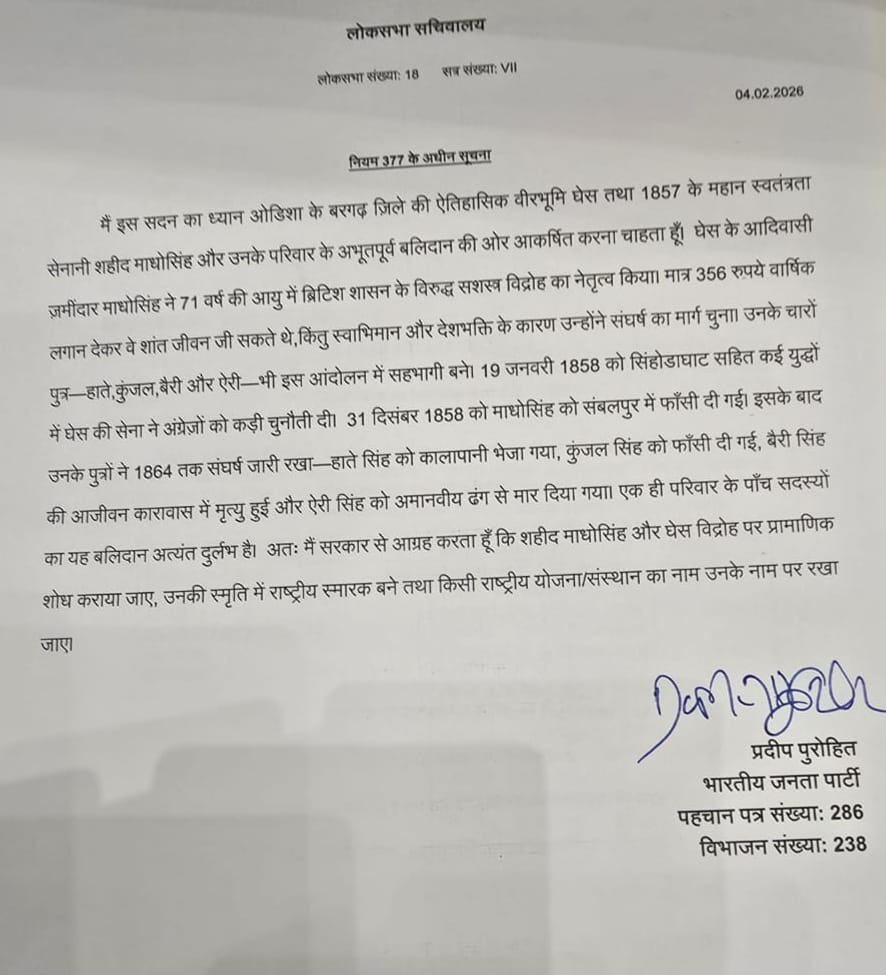 लोकसभा सचिवालय
लोकसभा संख्या: 18 सत्र संख्या: VII
04.02.2026
नियम 377 के अधीन सूचना
मैं इस सदन का ध्यान ओडिशा के बरगढ़ ज़िले की ऐतिहासिक वीरभूमि घेस तथा 1857 के महान स्वतंत्रता
सेनानी शहीद माधोसिंह और उनके परिवार के अभूतपूर्व बलिदान की ओर आकर्षित करना चाहता हूँ। घेस के आदिवासी
ज़मींदार माधोसिंह ने 71 वर्ष की आयु में ब्रिटिश शासन के विरुद्ध सशस्त्र विद्रोह का नेतृत्व किया। मात्र 356 रुपये वार्षिक
लगान देकर वे शांत जीवन जी सकते थे,किंतु स्वाभिमान और देशभक्ति के कारण उन्होंने संघर्ष का मार्ग चुना। उनके चारों
पुत्र—हाते,कुंजल,बैरी और ऐरी—भी इस आंदोलन में सहभागी बने। 19 जनवरी 1858 को सिंहोडाघाट सहित कई युद्धों
में घेस की सेना ने अंग्रेज़ों को कड़ी चुनौती दी। 31 दिसंबर 1858 को माधोसिंह को संबलपुर में फाँसी दी गई। इसके बाद
उनके पुत्रों ने 1864 तक संघर्ष जारी रखा—हाते सिंह को कालापानी भेजा गया, कुंजल सिंह को फाँसी दी गई, बैरी सिंह
की आजीवन कारावास में मृत्यु हुई और ऐरी सिंह को अमानवीय ढंग से मार दिया गया। एक ही परिवार के पाँच सदस्यों
का यह बलिदान अत्यंत दुर्लभ है। अतः मैं सरकार से आग्रह करता हूँ कि शहीद माधोसिंह और घेस विद्रोह पर प्रामाणिक
शोध कराया जाए, उनकी स्मृति में राष्ट्रीय स्मारक बने तथा किसी राष्ट्रीय योजना/संस्थान का नाम उनके नाम पर रखा
जाए।
प्रदीप पुरोहित
भारतीय जनता पार्टी
पहचान पत्र संख्या: 286
विभाजन संख्या: 238